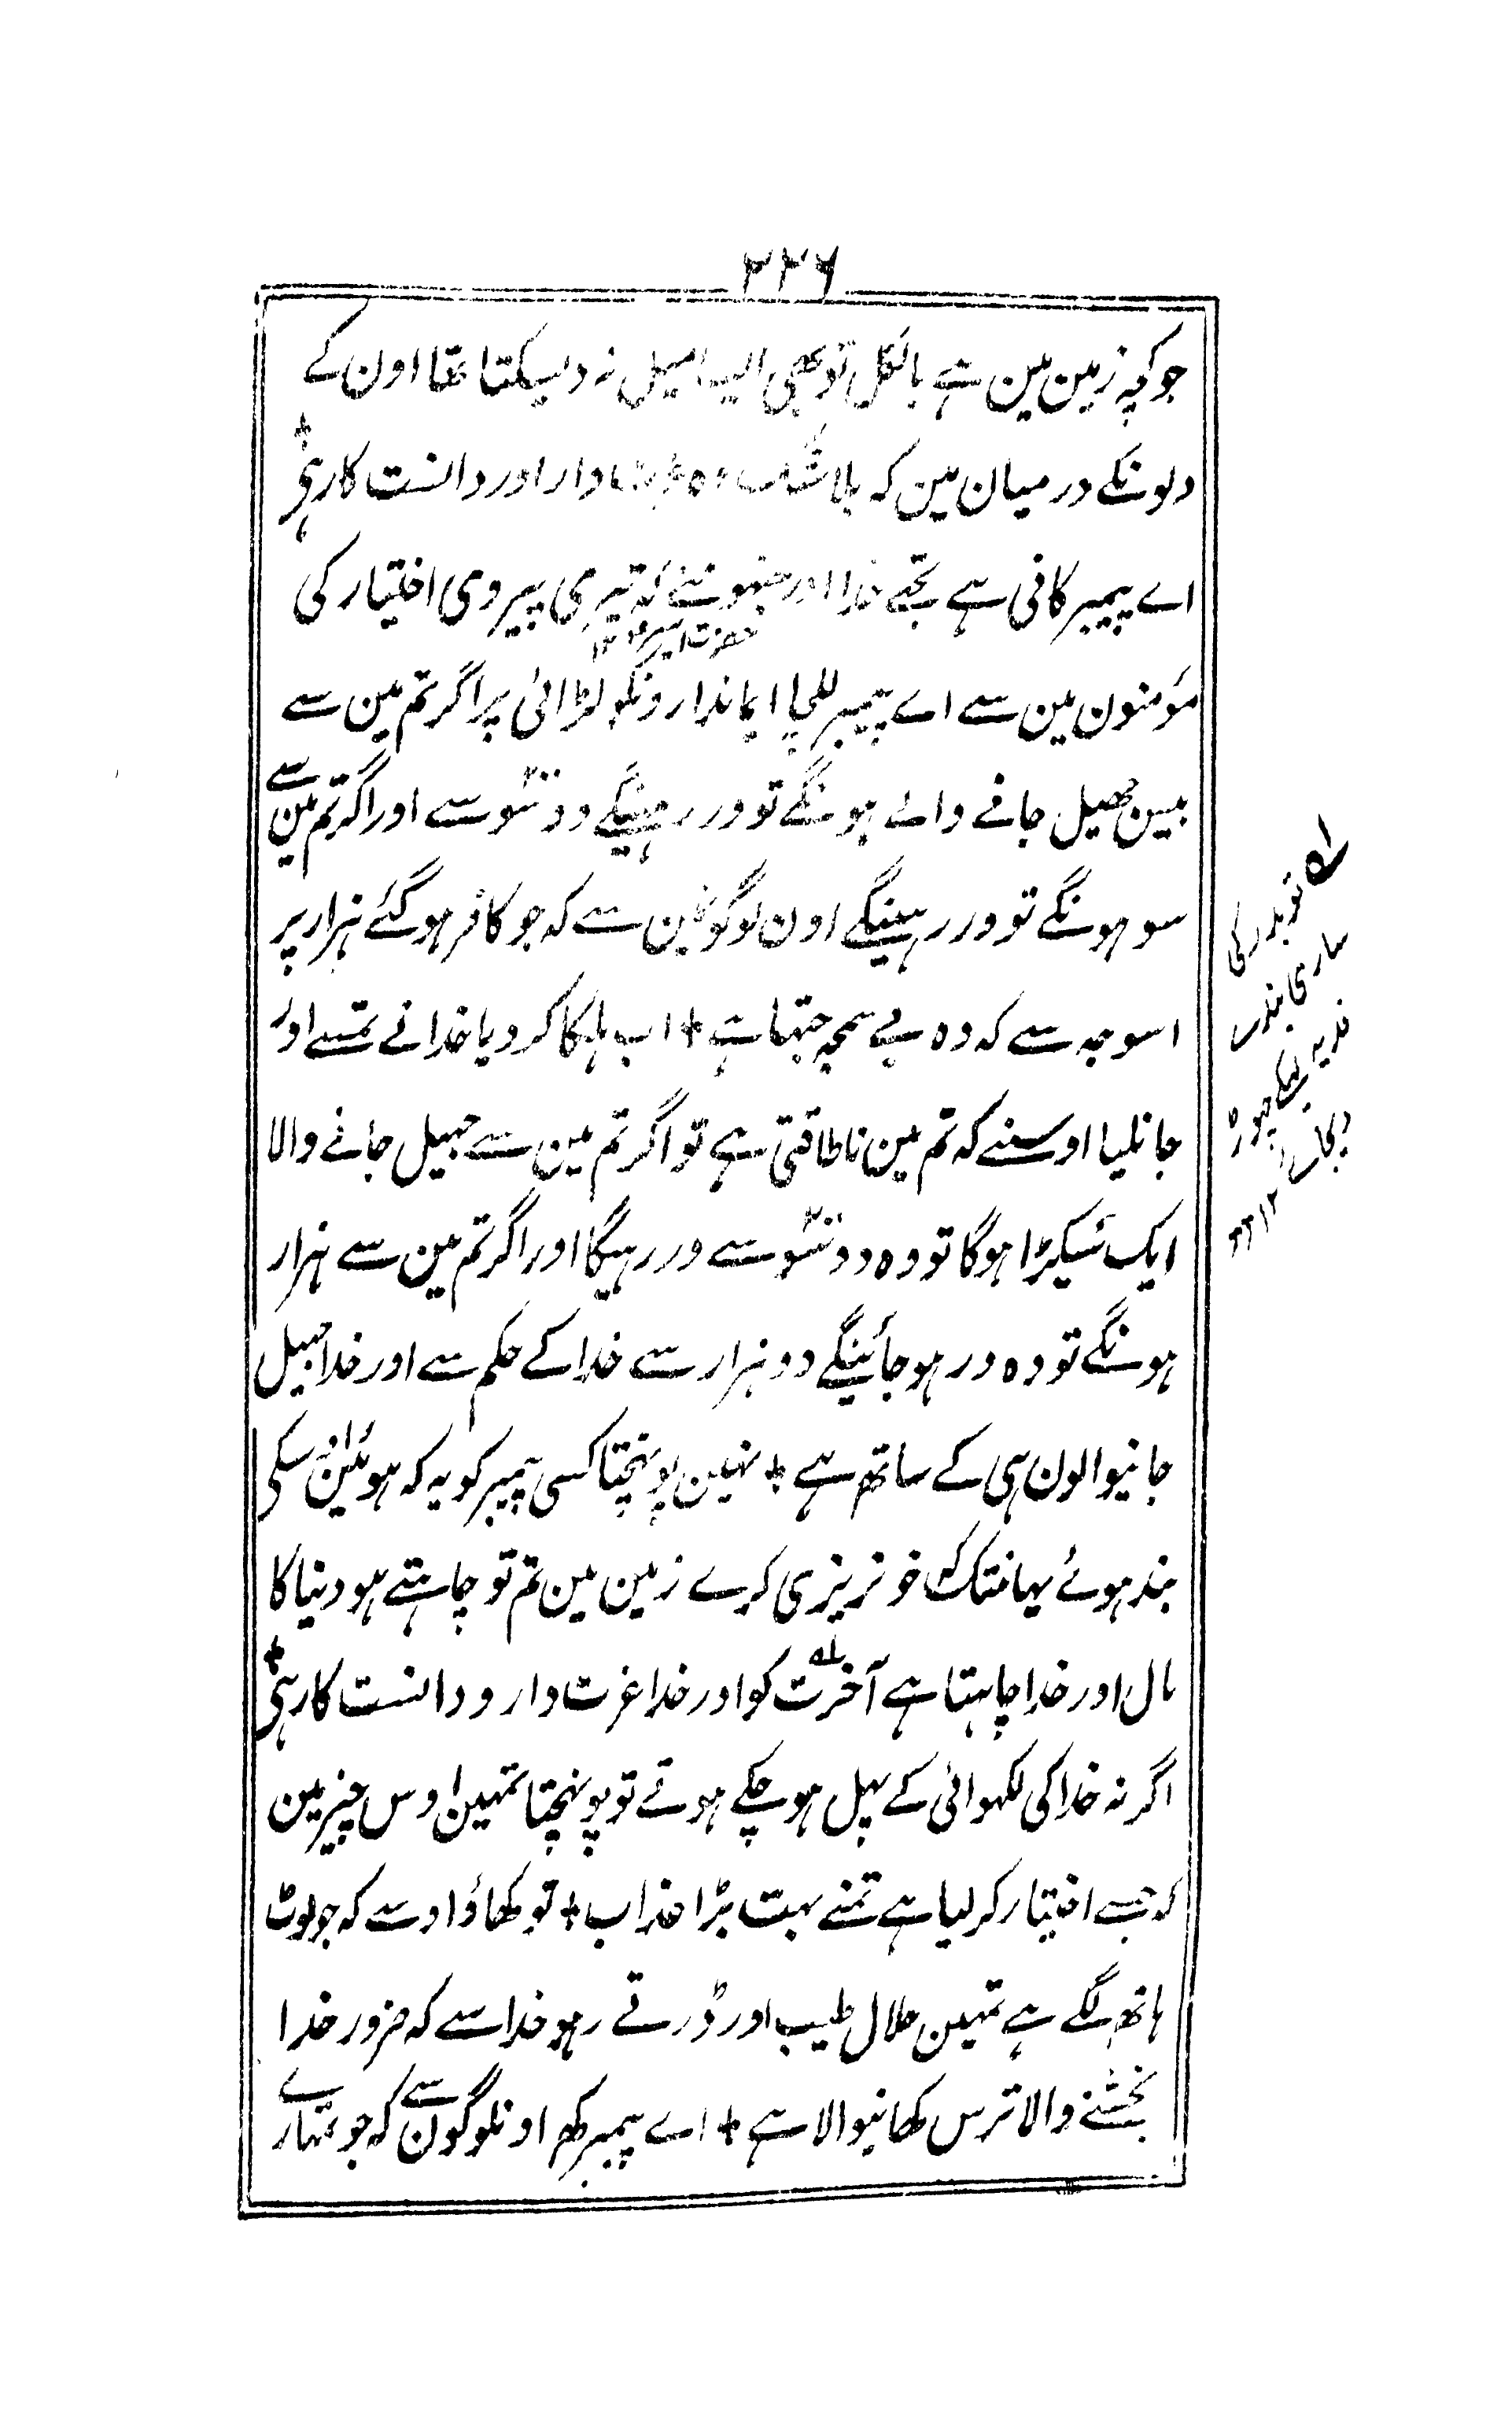 ۲۲۶
جو کچھ زمین مین ہے بالکل تو بھی میل نہ دیسکتا تھا اون کے
دلونکے درمیان مین کہ بلا شک وہ دار اور دانست کار ہی +
اے پیمبر کافی ہے تجھے خدا اور جنہونے کہ تیری پیروی اختیار کی
حضرت امیر ۱۲
مؤمنون مین سے اے پیمبر للچا ایماندارونکو لڑائی پر اگر تم مین سے
بیس جھیل جانے والے ہونگے تو ور رہینگے دو سو سے اور اگر تم مین سے
سو ہونگے تو ور رہینگے اون لوگونمین سے کہ جو کافر ہو گئے ہزار پر
اسوجہ سے کہ وہ بے سمجھ جتھا ہے + اب ہلکا کر دیا خدا نے تمسے اور
جانلیا اوسنے کہ تم مین ناطاقتی ہے تو اگر تم مین سے جھیل جانے والا
ایک سیکڑا ہوگا تو وہ دو سو سے ور رہیگا اور اگر تم مین سے ہزار
ہونگے تو وہ ور ہو جائینگے دو ہزار سے خدا کے حکم سے اور خدا جھیل
جانیوالون ہی کے ساتھ ہے + نہین پونہچتا کسی پیمبر کو یہ کہ ہوئین اوسکی
بند ہوئے یہانتک کہ خونریزی کرے زمین مین تم تو چاہتے ہو دنیا کا
مال اور خدا چاہتا ہے آخرت کو اور خدا عزت دار و دانست کار ہی +
اگر نہ خدا کی لکھوائی کے پہل ہو چکے ہوتے تو پونہچتا تمہین اوس چیز مین
کہ جسے اختیار کر لیا ہے تمنے بہت بڑا عذاب + تو کھاؤ اوسے کہ جو لوٹ
ہاتھ لگے ہے تمہین حلال طیب اور ڈرتے رہو خدا سے کہ ضرور خدا
بخشنے والا ترس کھانیوالا ہے + اے پیمبر کھ اونلوگون سے کہ جو تمہارے
لہ تو بدر کی
ساری بندر
فدیہ لیکے چھوڑ
دیجائے ۱۲